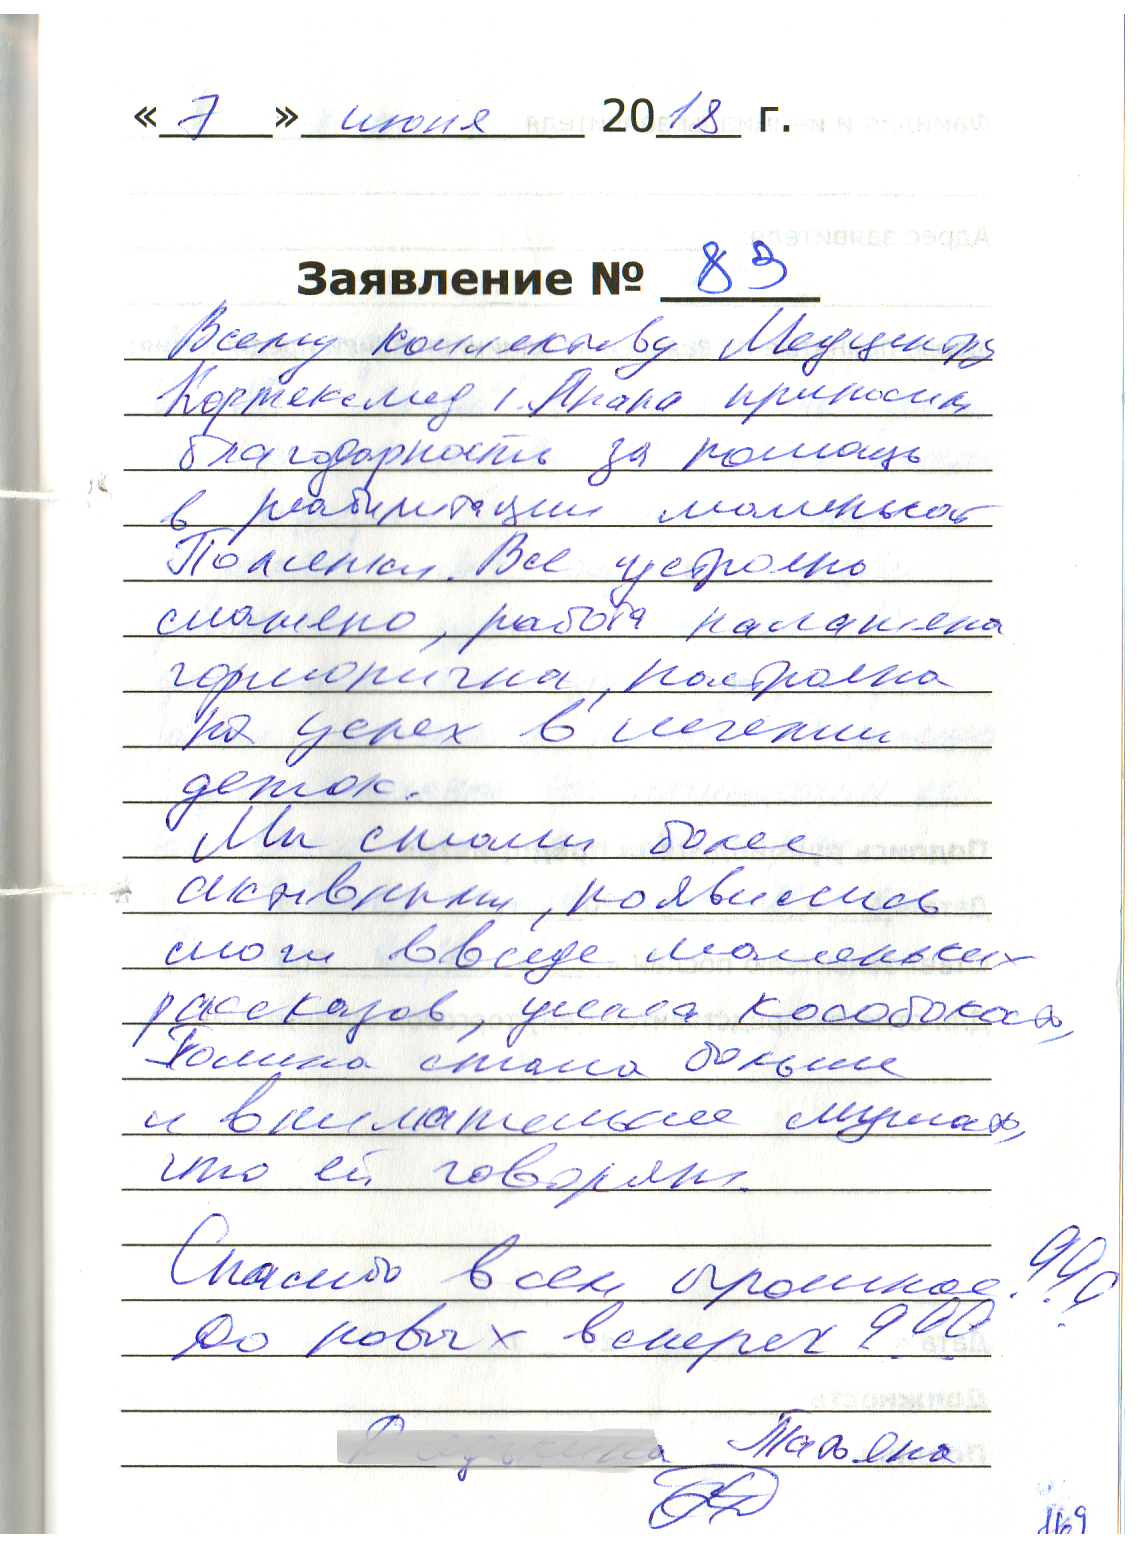 «7» июня 2018 г.
Заявление № 83
Всему коллективу Медцентра
Кортексмед г. Анапа приносим
благодарность за помощь
в реабилитации маленькой
Полинки. Все устроено
слажено, работа налажена
гормонична, настроена
на успех в лечении
деток.
Мы стали более
активными, появились
слоги в виде маленьких
рассказов, ушла кособокость,
Полина стала больше
и внимательнее слушать,
что ей говорят.
Спасибо всем огромное!!!
До новых встреч!!!
Татьяна
169